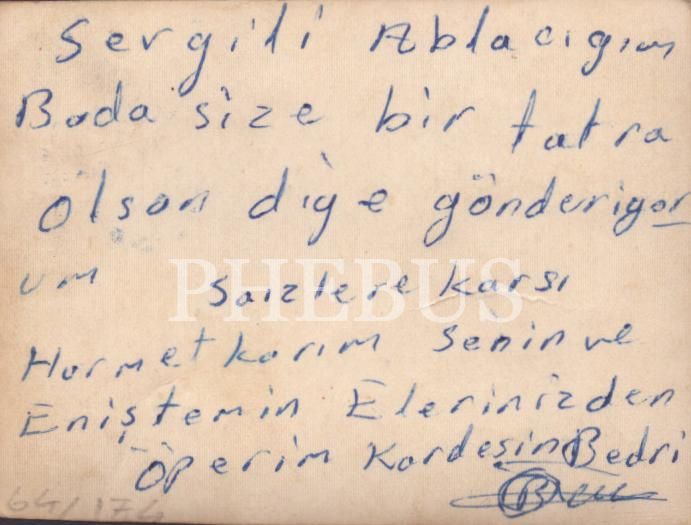 Sergili Ablacıgım
Boda size bir tatra
olson diye gönderiyor
um saizlere karsı
Hormetkarım senin ve
Eniştemin Elerinizden
Öperim Kardesin Bedri
PHEBUS
64/174